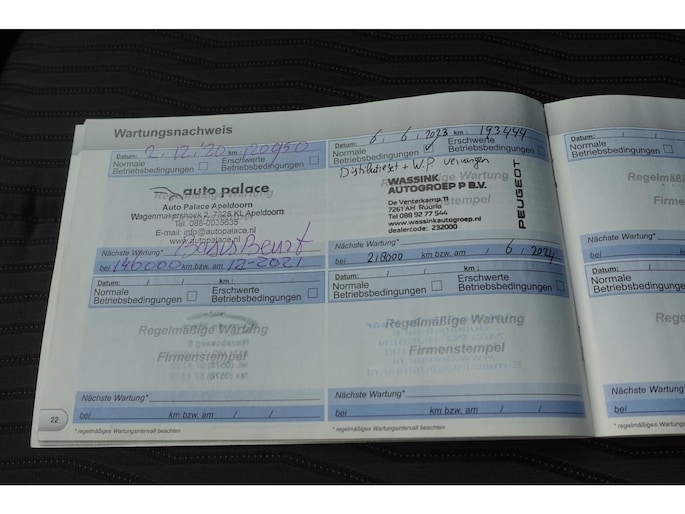 Wartungsnachweis
Datum: 2.12.'20 km: 120950
Normale Betriebsbedingungen
Erschwerte Betriebsbedingungen
Regelmäßige Wartung
auto palace
Auto Palace Apeldoorn
Wagenmakershoek 2, 7328 KL Apeldoorn
Tel. 088-0035635
E-mail: info@autopalace.nl
www.autopalace.nl
Nächste Wartung*
bei 146000 km bzw. am 12-2021
Datum: 6, 6, 2023 km: 193444
Normale Betriebsbedingungen ✓
Erschwerte Betriebsbedingungen
+ WP
WASSINK
AUTOGROEP P B.V.
De Venterkamp 11
7261 AH Ruurlo
Tel 088 92 77 544
www.wassinkautogroep.nl
dealercode: 232000
PEUGEOT
Nächste Wartung*
bei 218000 km bzw. am / 6, 2024
Datum: / / km:
Normale Betriebsbedingungen
Erschwerte Betriebsbedingungen
Regelmäßige Wartung
Firmenstempel
Nächste Wartung*
bei km bzw. am / /
Datum: / / km:
Normale Betriebsbedingungen
Erschwerte Betriebsbedingungen
Regelmäßige Wartung
Firmenstempel
Nächste Wartung*
bei km bzw. am / /
22
* regelmäßiges Wartungsintervall beachten
* regelmäßiges Wartungsintervall beachten
Datum: / /
Normale
Betriebsbedingungen
Nächste Wartung*
bei
Datum: / /
Normale
Betriebsbedingungen
Nächste Wartung*
bei
* regelmäßiges